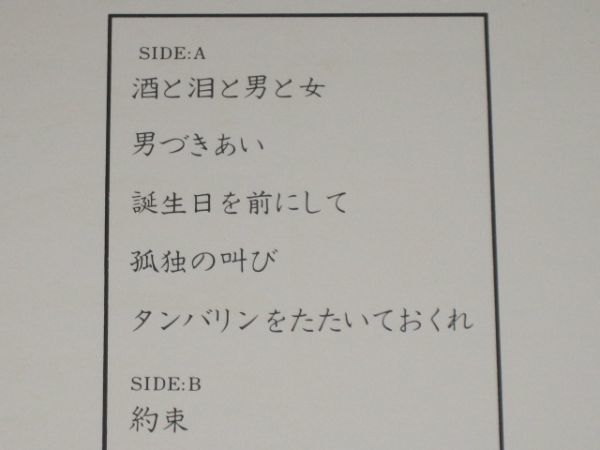 SIDE:A
酒と泪と男と女
男づきあい
誕生日を前にして
孤独の叫び
タンバリンをたたいておくれ
SIDE:B
約束